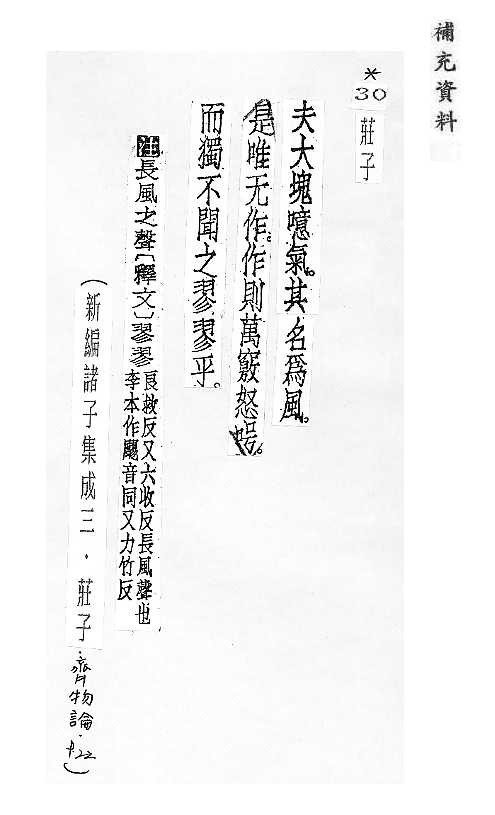 補充資料
*
30
莊子
夫大塊噫氣。其名爲風。
是唯无作。作則萬竅怒呺。
而獨不聞之翏翏乎。
注長風之聲〔釋文〕翏翏
良救反又六收反長風聲也
李本作飂音同又力竹反
(新編諸子集成三．莊子．齊物論．p.22)